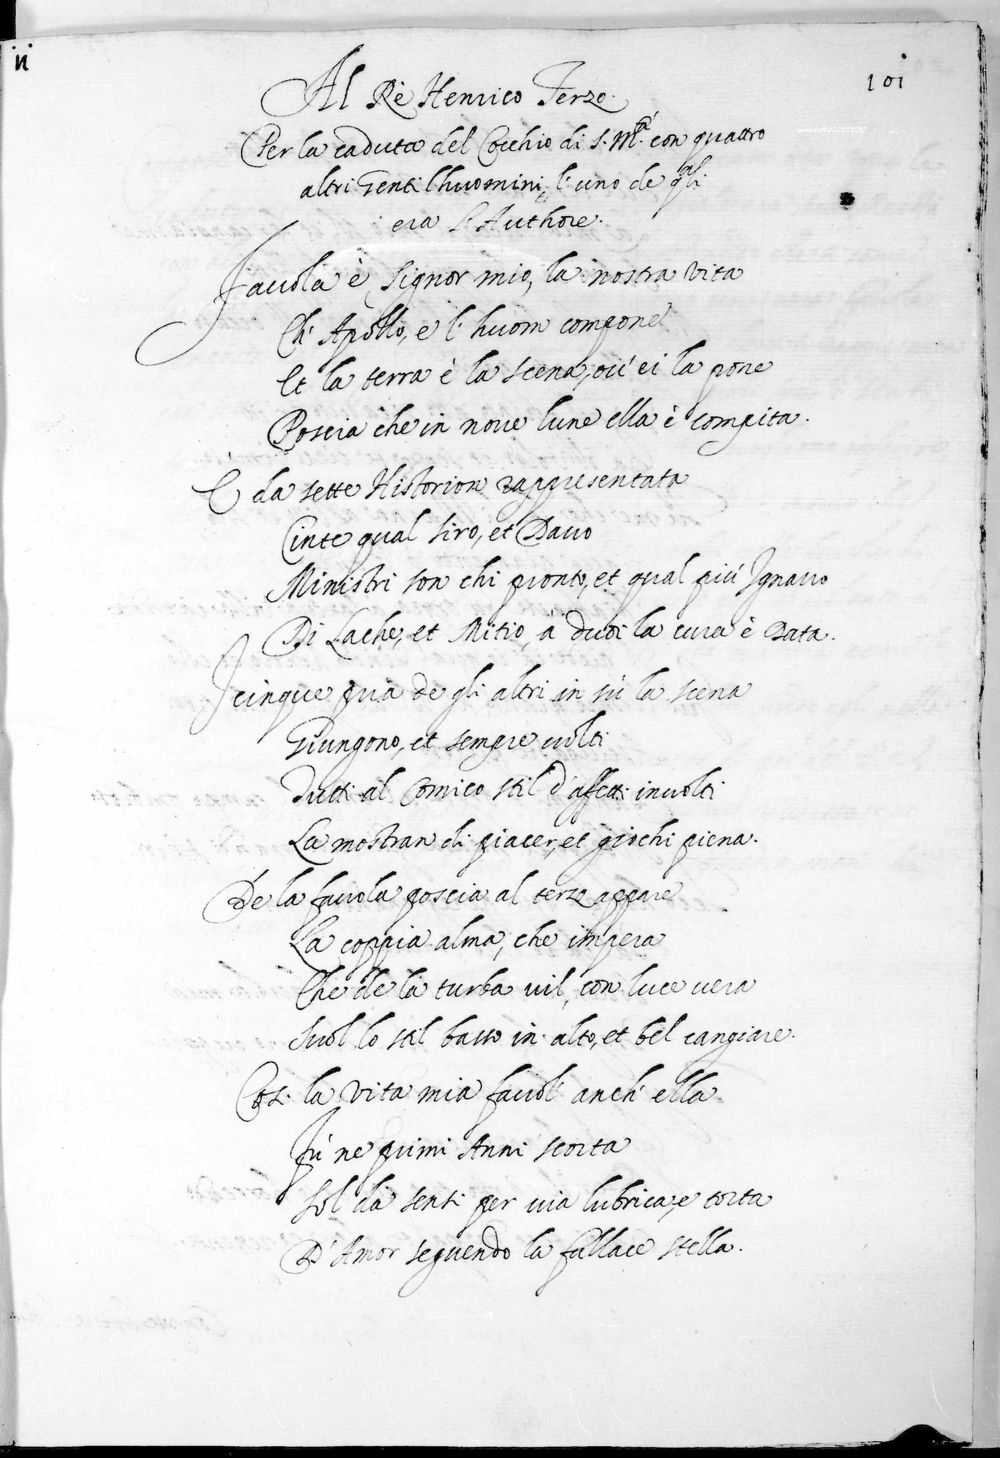 101
Al Rè Henrico Terzo.
Per la caduta del Cocchio di S. M.tà con quattro
altri Gentilhuomini, l'uno de qli
era l'Authore.
Favola è Signor mio, la nostra vita
Ch' Apollo, e l'huom compone
Et la terra è la scena, ou' ei la pone
Poscia che in noue lune ella è compita.
E da sette Historion rappresentata
Cinte qual Siro, et Dauo
Ministri son chi pronto, et qual più Ignauo
Di Lache, et Mitio, a duoi la cura è data.
I cinque pria de gli altri in sù la scena
Giungono, et sempre uolti
Tutti al Comico stil d'affetti inuolti
La mostran di piacer, et giochi piena.
De la fauola poscia al terzo appare
La coppia alma, che impera
Che de la turba uil, con luce uera
Suol lo stil basso in alto, et bel cangiare.
Cosi la vita mia fauol' anch' ella
Fù ne primi Anni scorta
Sol da sensi per uia lubrica, e torta
D'Amor seguendo la fallace stella.